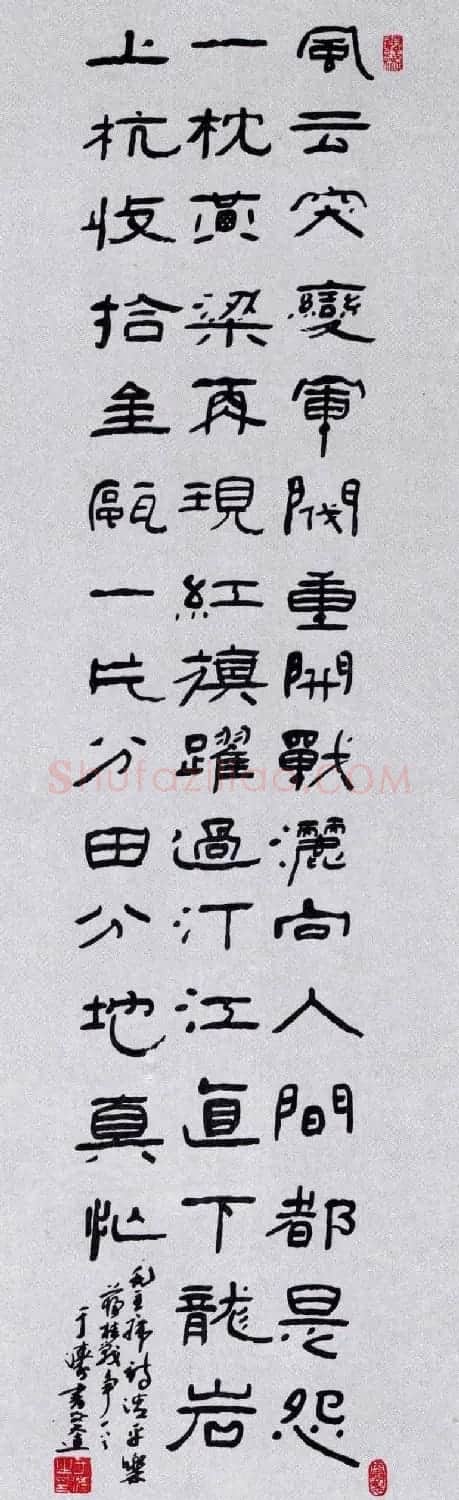 風云突變軍閥重開戰灑向人間都是怨
一枕黃梁再現紅旗躍過汀江直下龍岩
上杭收拾金甌一片分田分地真忙
毛主席詩清平樂
蔣桂戰争
书
Shufaziliao.COM